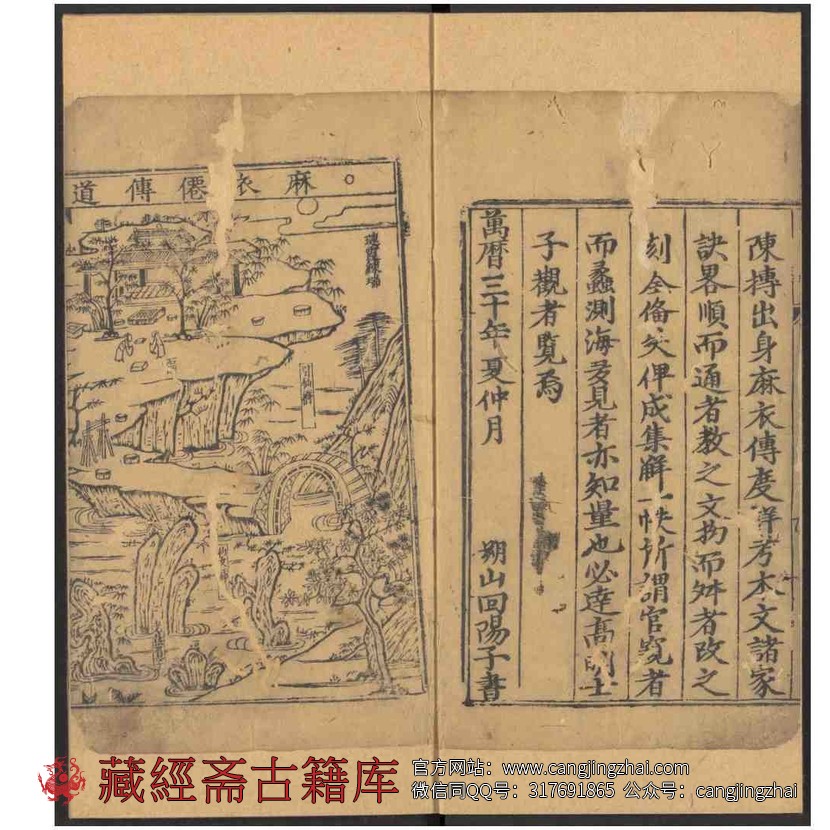 陳摶出身麻衣傳度詳考本文諸家
訣畧順而通者教之文拗而舛者改之
刻全俻矣俾成集解一帙所謂官窺者
而蠡測海多見者亦知量也必逹高明士
子觀者覧焉
萬曆三十年夏仲月
山回陽子書
麻衣僊傳道
藏經斎古籍库
官方网站：www.cangjingzhai.com
微信同QQ号：317691865 公众号：cangjingzhai